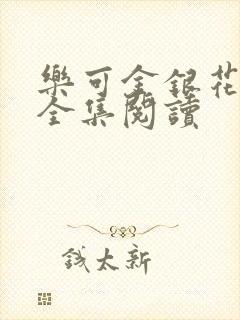 樂可金銀花
全集閱讀
錢太新